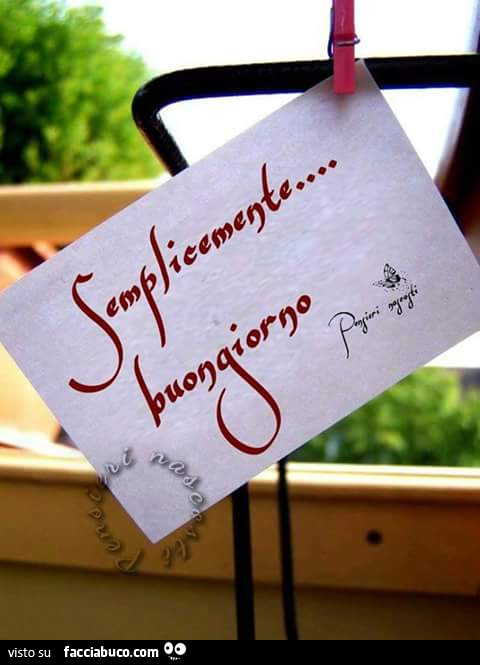 Semplicemente....
buongiorno
Pensieri nascosti
Pensieri nascosti
visto su facciabuco.com